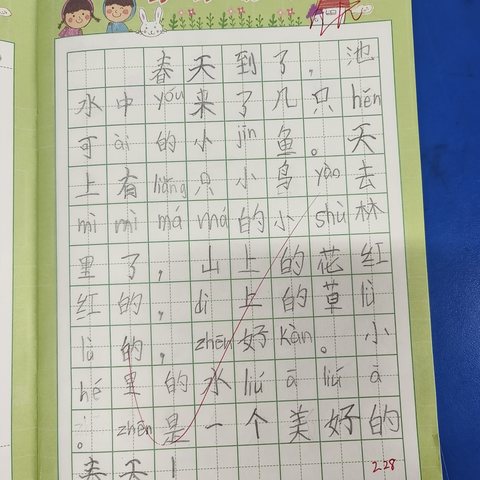 春天到了，池
水中yóu来了几只hěn
可ài的小jīn鱼。天
上有liǎng只小鸟yào去
mì mì má má的小shù林
里了，山上的花红
红的，dì上的草lǜ
lǜ的，zhēn好kàn。小
hé里的水liú ā liú ā
。zhēn是一个美好的
春天！
2.28